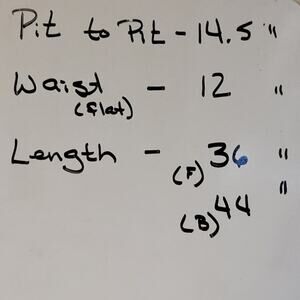 Pit to Pit - 14.5 "
Waist - 12 "
(flat)
Length - (F) 36 "
(B) 44 "